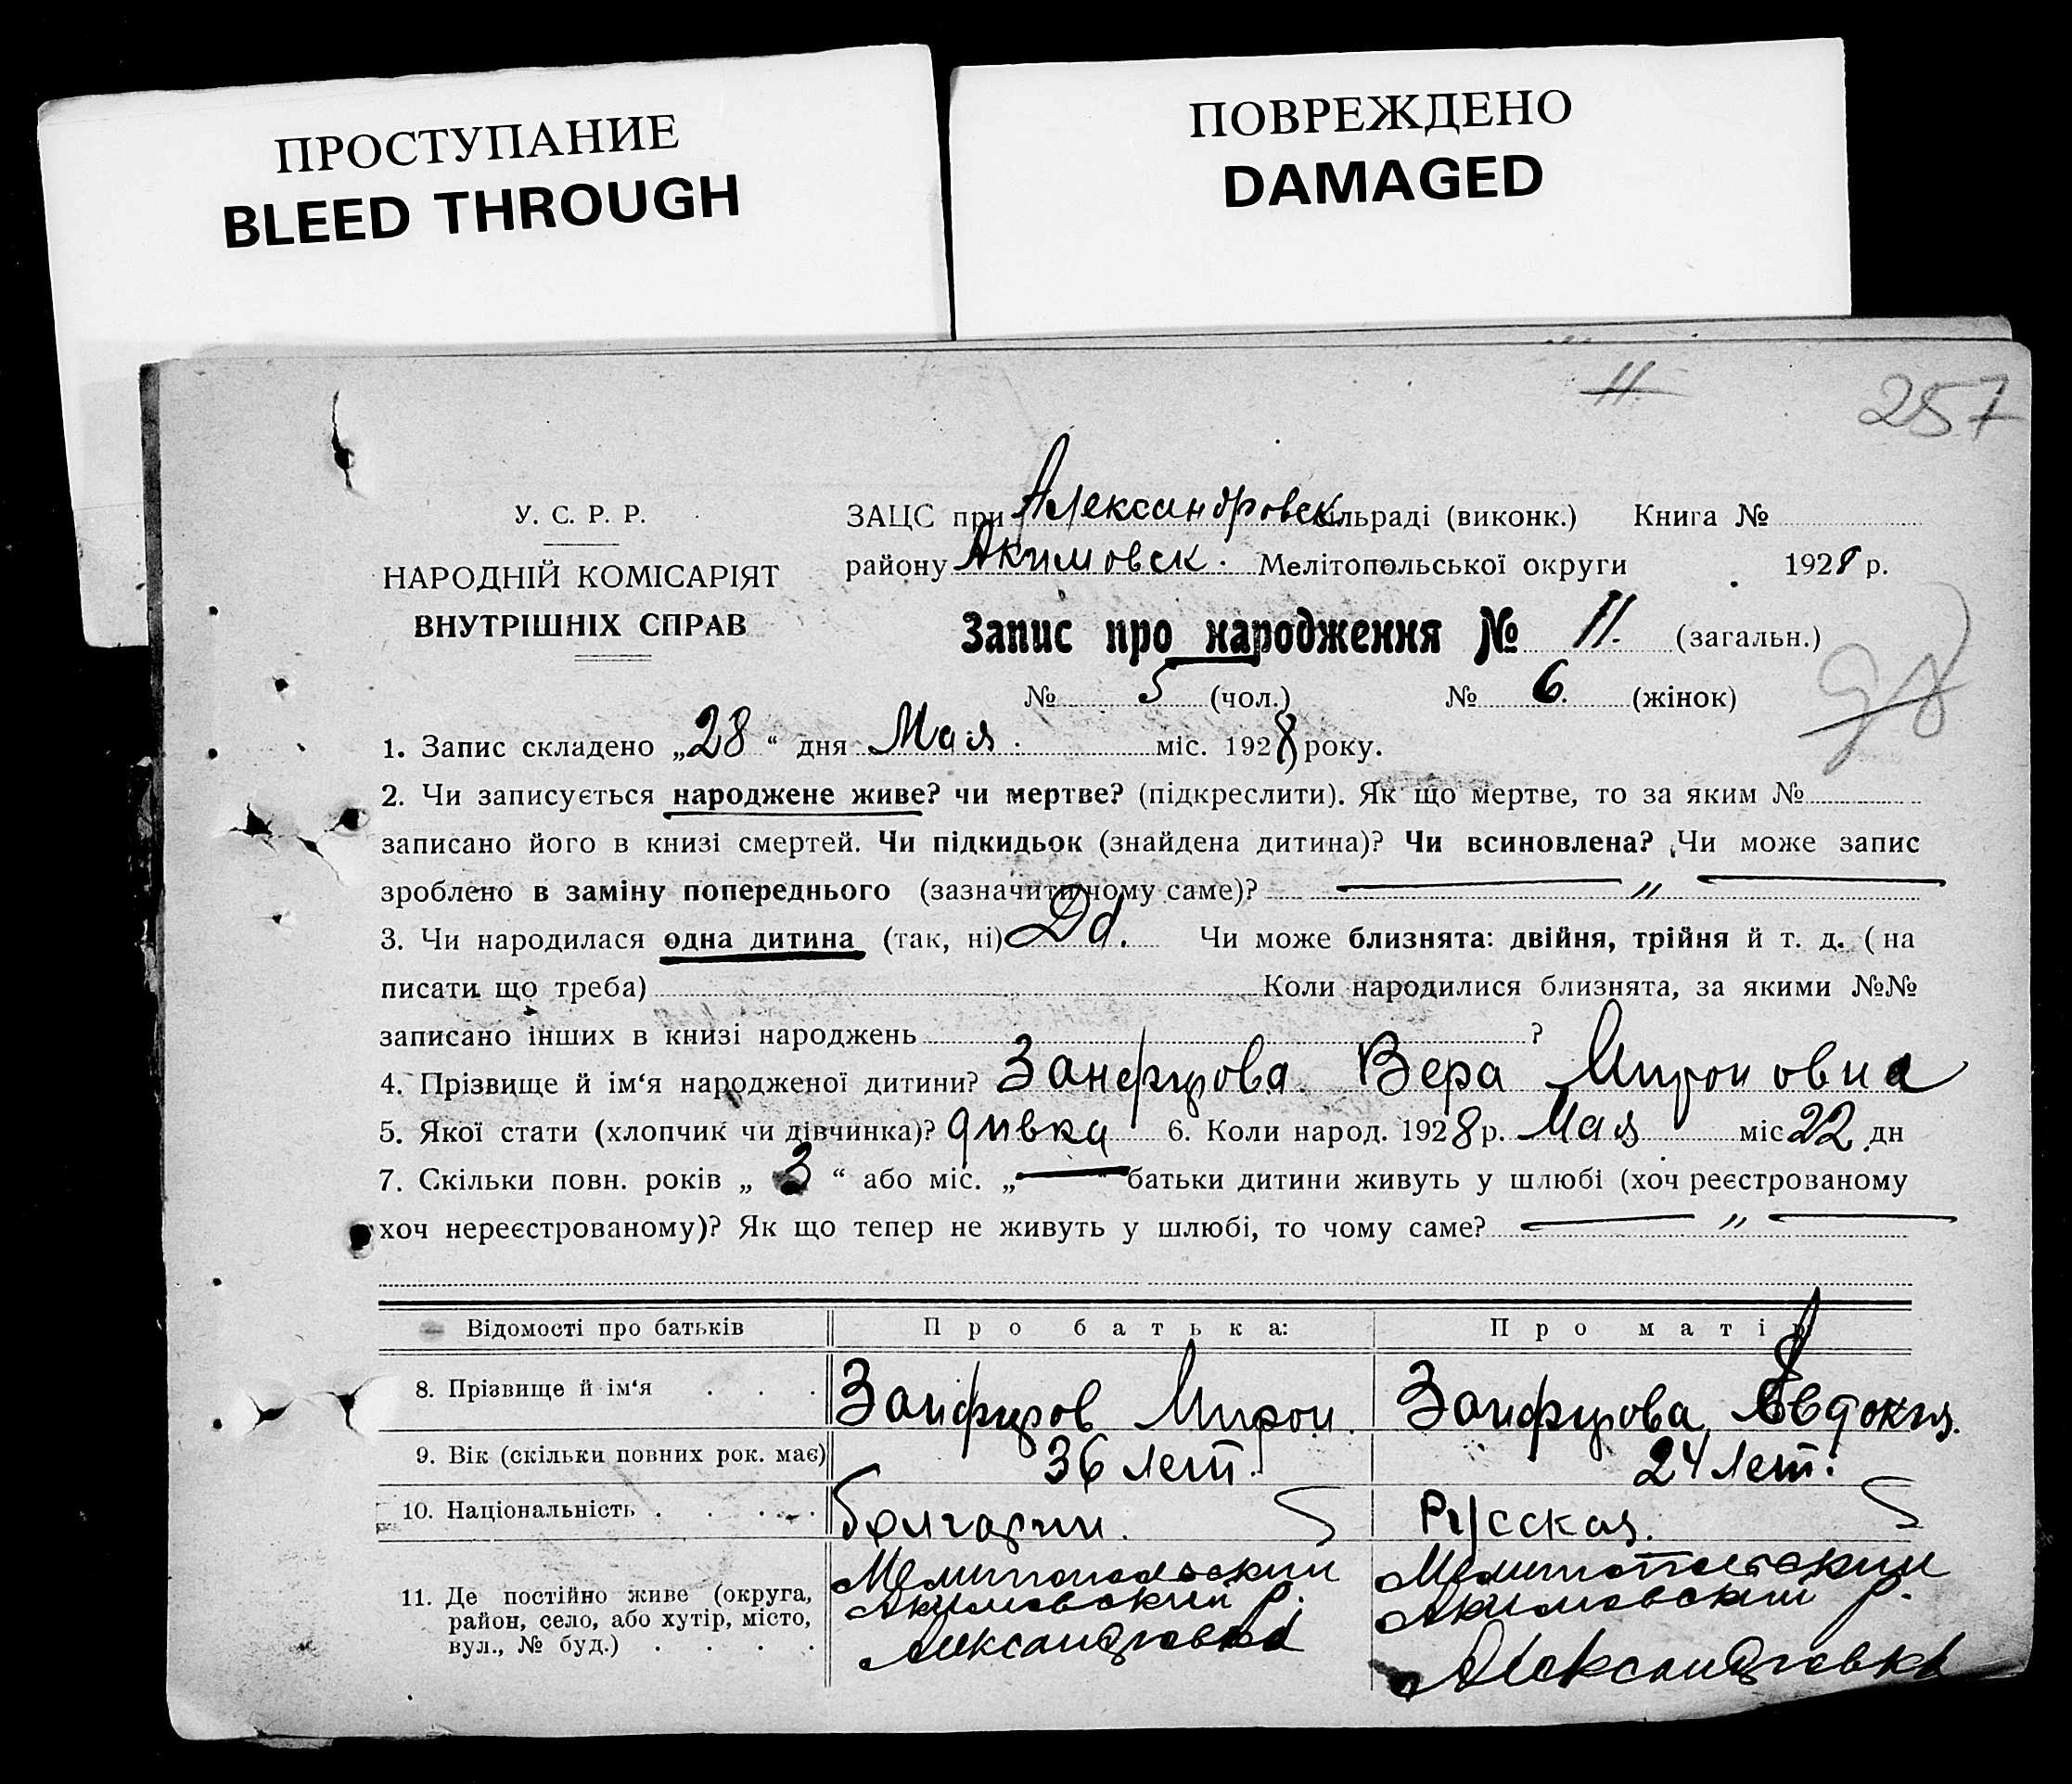 ПРОСТУПАНИЕ
BLEED THROUGH
ПОВРЕЖДЕНО
DAMAGED
11.
257
У. С. Р. Р.
НАРОДНІЙ КОМІСАРІЯТ
ВНУТРІШНІХ СПРАВ
ЗАЦС при Александровск сільраді (виконк.) Книга №
району Акимовск. Мелітопольської округи 1928 р.
Запис про народження № 11. (загальн.)
98
№ 5 (чол.) № 6. (жінок)
1. Запис складено „28“ дня Мая міс. 1928 року.
2. Чи записується народжене живе? чи мертве? (підкреслити). Як що мертве, то за яким №
записано його в книзі смертей. Чи підкидьок (знайдена дитина)? Чи всиновлена? Чи може запис
зроблено в заміну попереднього (зазначити чому саме)? — „ —
3. Чи народилася одна дитина (так, ні) Да. Чи може близнята: двійня, трійня й т. д. (на
писати що треба) Коли народилися близнята, за якими №№
записано інших в книзі народжень ?
4. Прізвище й ім‘я народженої дитини? Занфирова Вера Мироновна
5. Якої стати (хлопчик чи дівчинка)? дивка 6. Коли народ. 1928 р. Мая міс 22 дн
7. Скільки повн. років „ 3 “ або міс. „ — “ батьки дитини живуть у шлюбі (хоч реєстрованому
хоч нереєстрованому)? Як що тепер не живуть у шлюбі, то чому саме? — „ —
Відомості про батьків Про батька: Про матір
8. Прізвище й ім‘я . . . Занфиров Мирон. Занфирова Евдокия.
9. Вік (скільки повних рок. має) 36 лет. 24 лет.
10. Національність . . . . Болгарин. Русская.
11. Де постійно живе (округа, Мелитопольский Мелитопольский
район, село, або хутір, місто, Акимовский р. Акимовский р.
вул., № буд.) . . . . Александровка Александровка